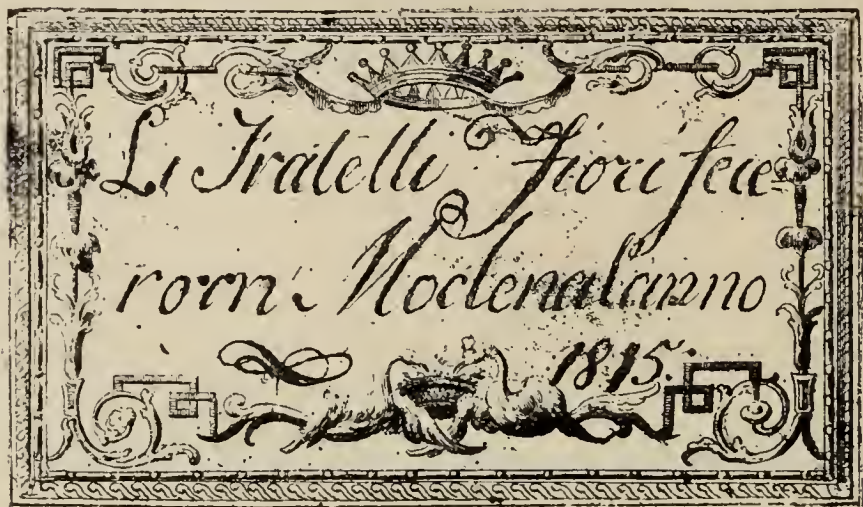 Li Fratelli Fiori fece
ro in Modena l'anno
1815.